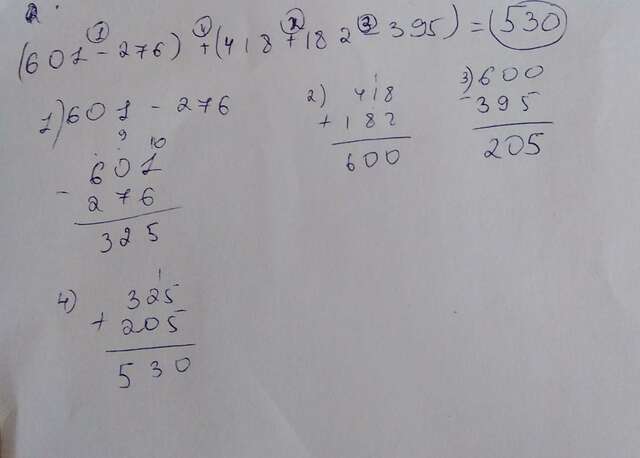 2.
(601 - 276) + (418 + 182 - 395) = 530
1 4 2 3
1) 601 - 276
9 10
601
- 276
325
2) 1
418
+ 182
600
3) 600
- 395
205
4) 1
325
+ 205
530